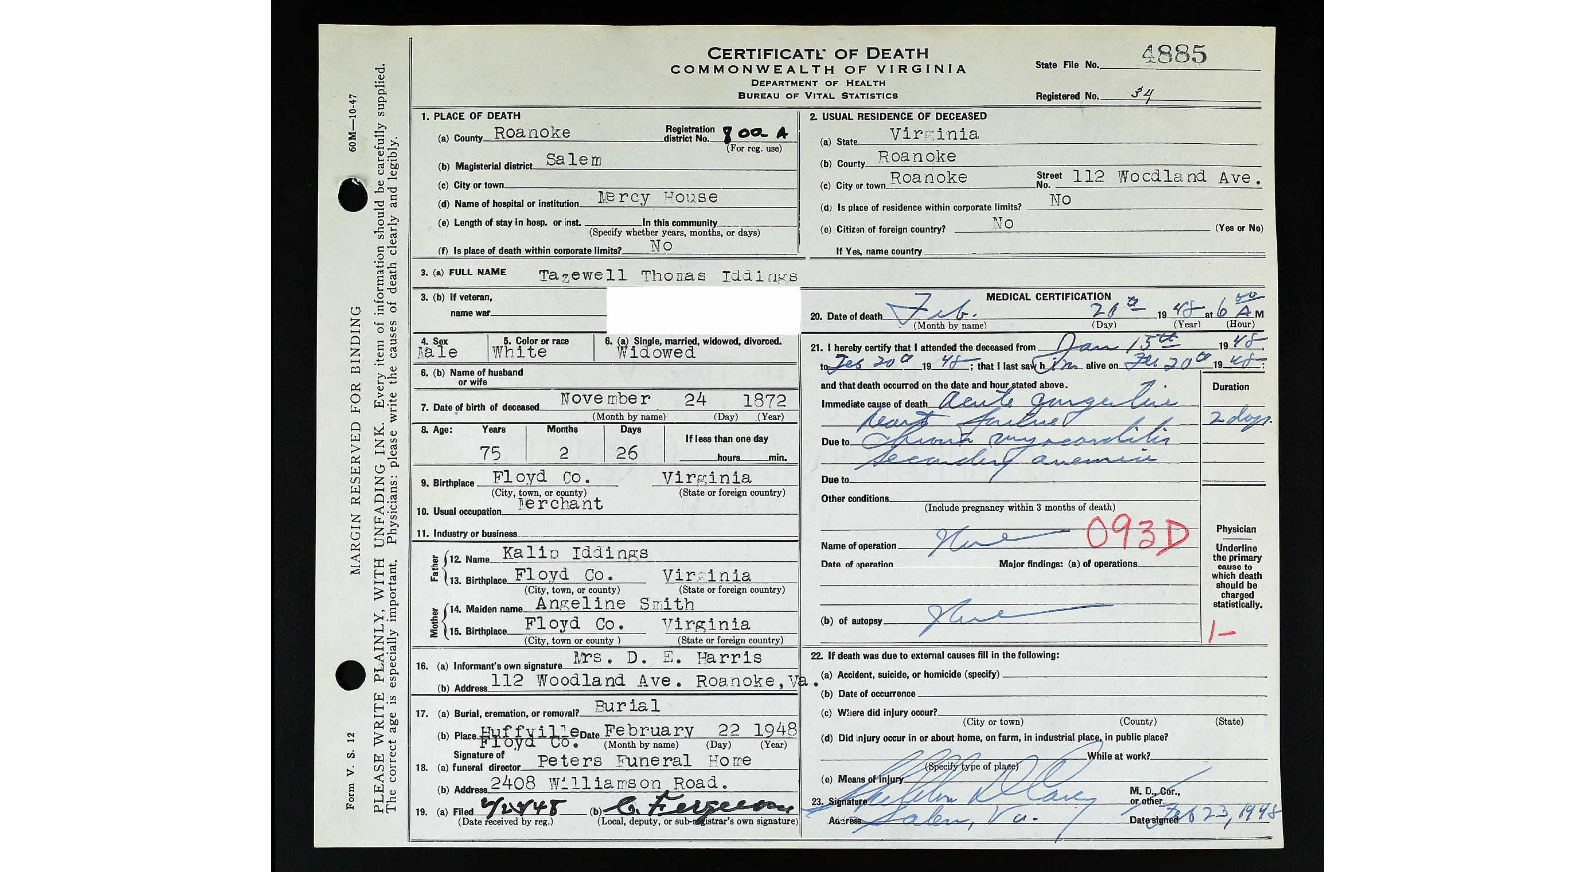 CERTIFICATE OF DEATH
COMMONWEALTH OF VIRGINIA
DEPARTMENT OF HEALTH
BUREAU OF VITAL STATISTICS
State File No. 4885
Registered No. 34
60M—10-47
MARGIN RESERVED FOR BINDING
Form V. S. 12
PLEASE WRITE PLAINLY, WITH UNFADING INK. Every item of information should be carefully supplied.
The correct age is especially important. Physicians: please write the causes of death clearly and legibly.
1. PLACE OF DEATH
(a) County Roanoke Registration district No. 800 A
(For reg. use)
(b) Magisterial district Salem
(c) City or town
(d) Name of hospital or institution Mercy House
(e) Length of stay in hosp. or inst. In this community
(Specify whether years, months, or days)
(f) Is place of death within corporate limits? No
2. USUAL RESIDENCE OF DECEASED
(a) State Virginia
(b) County Roanoke
(c) City or town Roanoke Street No. 112 Woodland Ave.
(d) Is place of residence within corporate limits? No
(e) Citizen of foreign country? No (Yes or No)
If Yes, name country
3. (a) FULL NAME Tazewell Thomas Iddings
3. (b) If veteran,
name war
4. Sex Male 5. Color or race White 6. (a) Single, married, widowed, divorced. Widowed
6. (b) Name of husband
or wife
7. Date of birth of deceased November 24 1872
(Month by name) (Day) (Year)
8. Age: Years Months Days If less than one day
75 2 26 hours min.
9. Birthplace Floyd Co. Virginia
(City, town, or county) (State or foreign country)
10. Usual occupation Merchant
11. Industry or business
Father
12. Name Kalip Iddings
13. Birthplace Floyd Co. Virginia
(City, town, or county) (State or foreign country)
Mother
14. Maiden name Angeline Smith
15. Birthplace Floyd Co. Virginia
(City, town or county ) (State or foreign country)
16. (a) Informant's own signature Mrs. D. E. Harris
(b) Address 112 Woodland Ave. Roanoke, Va.
17. (a) Burial, cremation, or removal? Burial
(b) Place Huffville Date February 22 1948
Floyd Co. (Month by name) (Day) (Year)
Signature of
18. (a) funeral director Peters Funeral Home
(b) Address 2408 Williamson Road.
19. (a) Filed (b) C. Ferguson
(Date received by reg.) (Local, deputy, or sub-registrar's own signature)
MEDICAL CERTIFICATION
20. Date of death Feb. 20th 1948 at 6 00 A M
(Month by name) (Day) (Year) (Hour)
21. I hereby certify that I attended the deceased from Jan 15th 1948,
to Feb 20th 1948; that I last saw him alive on Feb 20th 1948;
and that death occurred on the date and hour stated above.
Duration
Immediate cause of death Acute congestive
heart failure 2 days.
Due to Chronic myocarditis
Secondary anemia
Due to
Other conditions
(Include pregnancy within 3 months of death)
093D
Name of operation None
Date of operation Major findings: (a) of operations
(b) of autopsy None
Physician
Underline
the primary
cause to
which death
should be
charged
statistically.
1-
22. If death was due to external causes fill in the following:
(a) Accident, suicide, or homicide (specify)
(b) Date of occurrence
(c) Where did injury occur?
(City or town) (County) (State)
(d) Did injury occur in or about home, on farm, in industrial place, in public place?
While at work?
(Specify type of place)
(e) Means of injury
23. Signature M. D., Cor., or other
Address Salem, Va. Date signed Feb 23, 1948